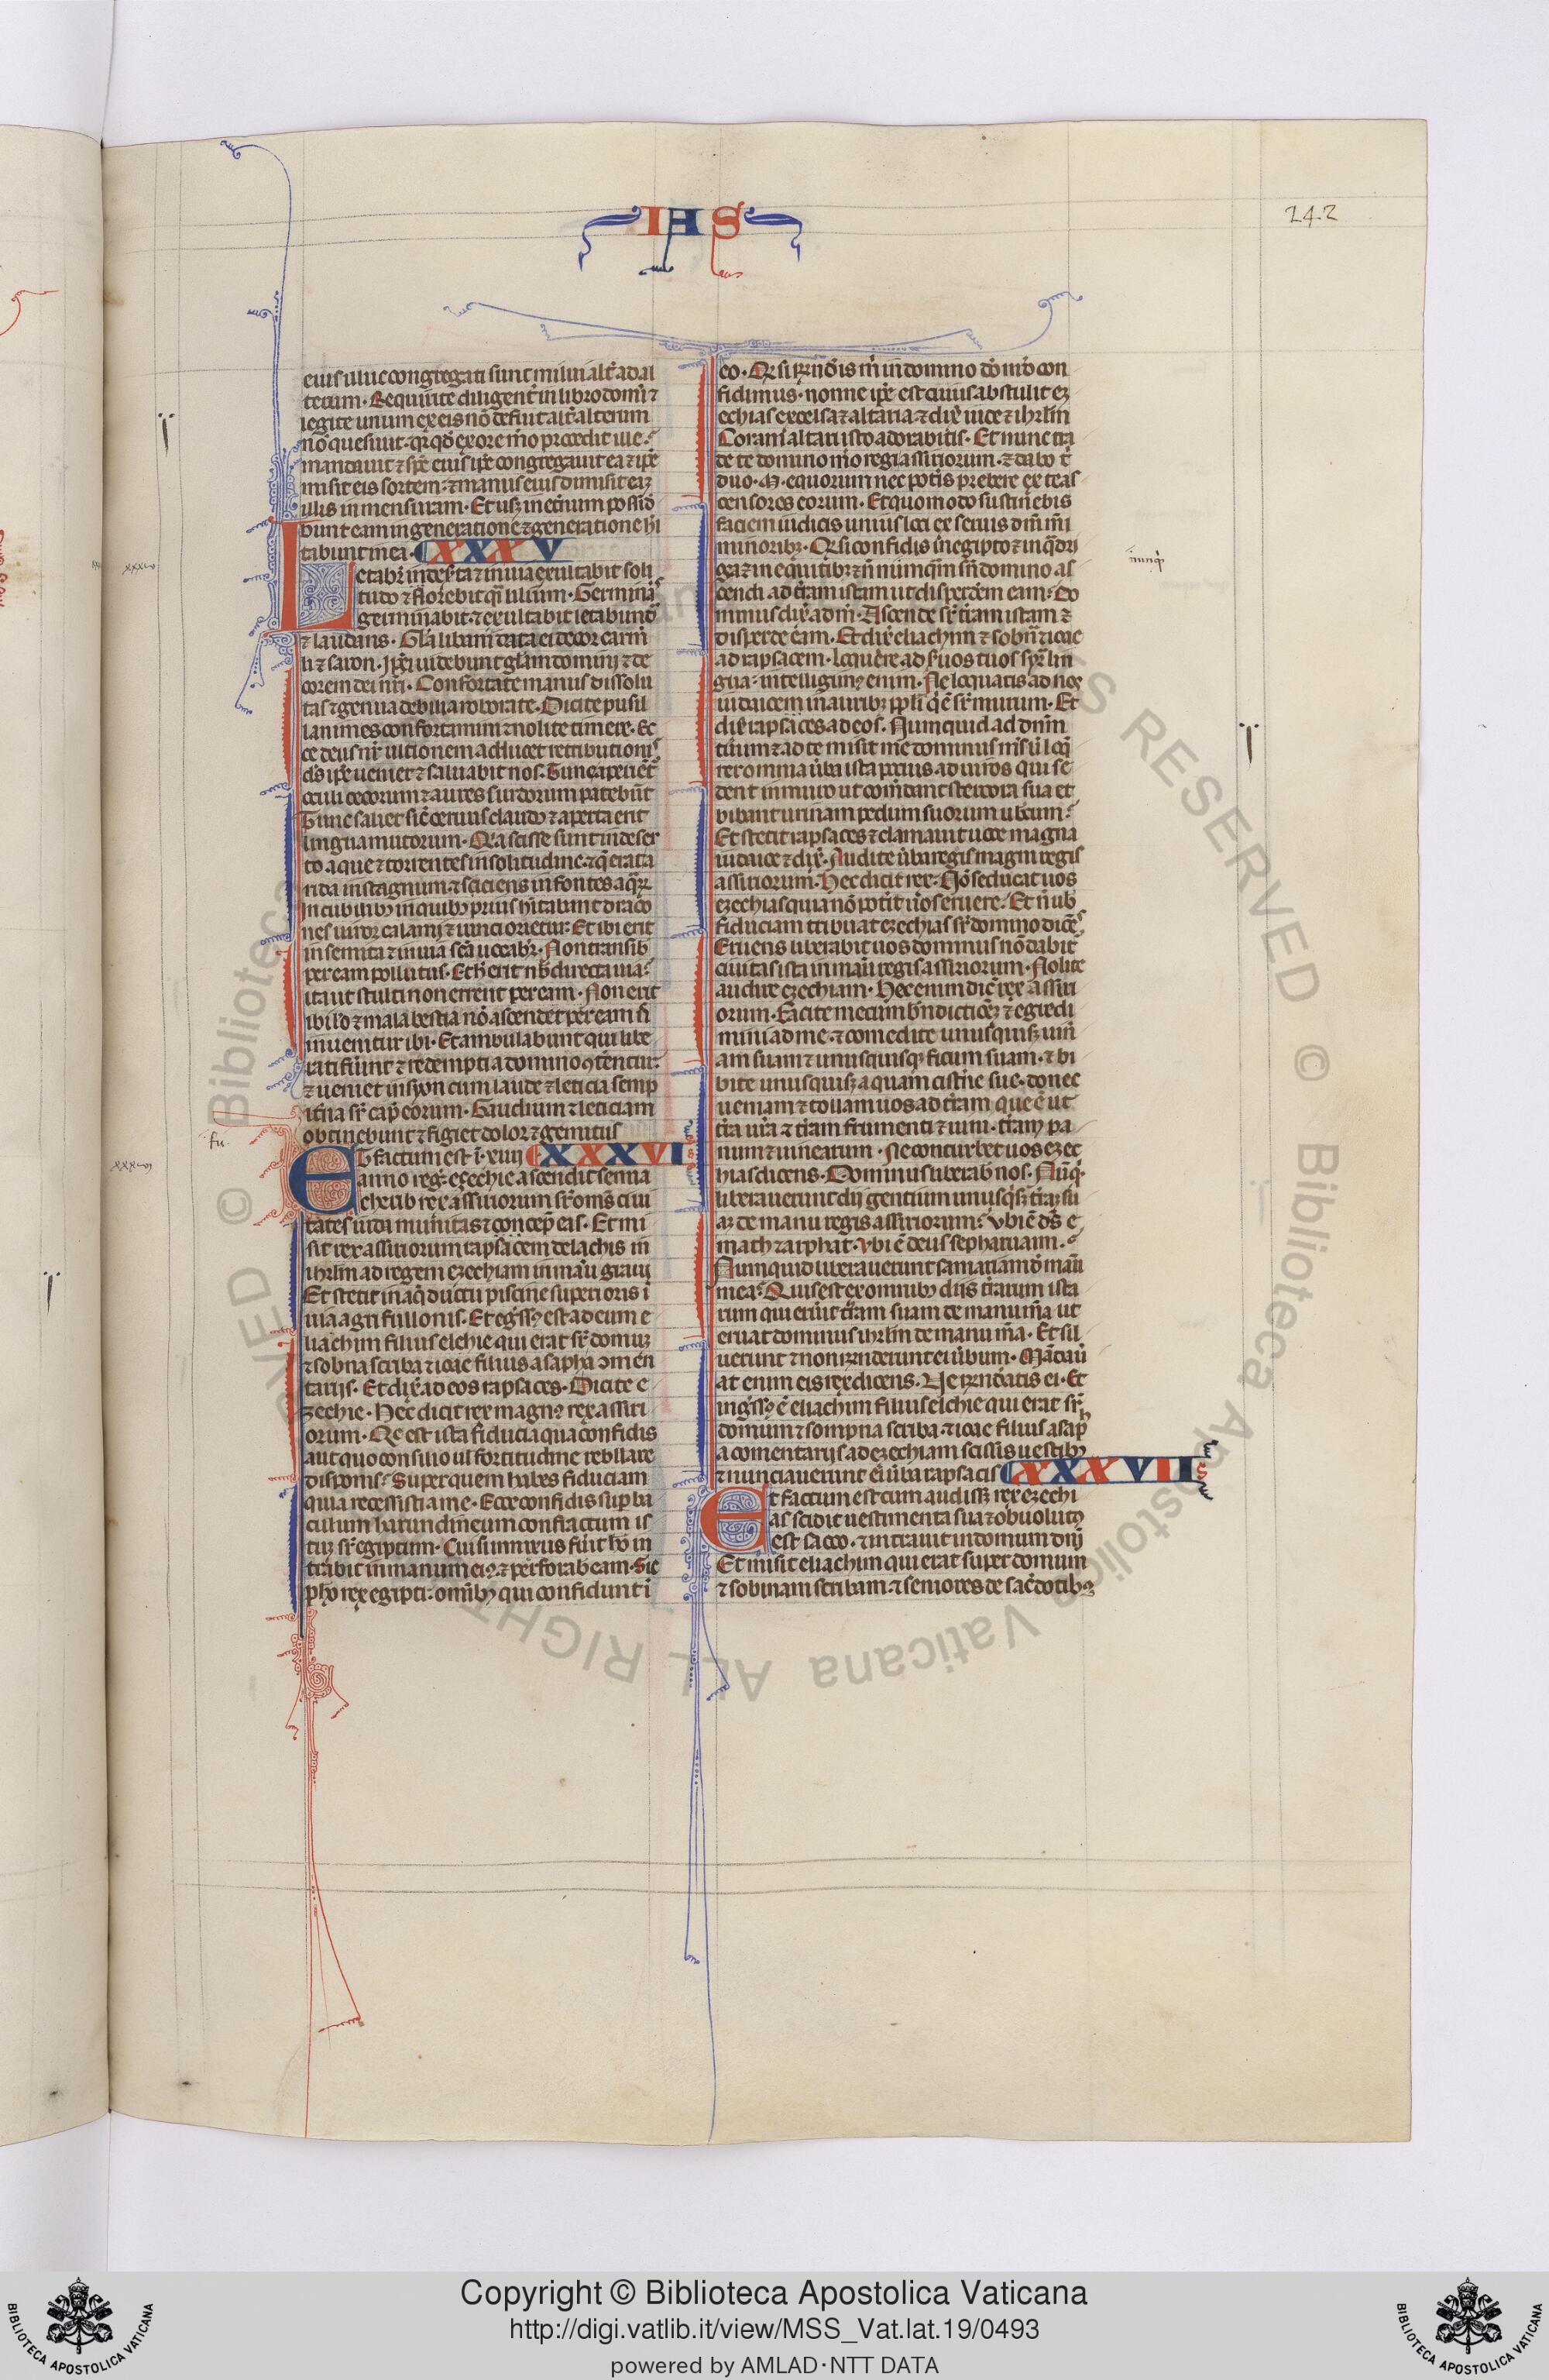 IHS
242
eius illuc congregati sunt milui alt̃ ad al
terum. Requirite diligent̃ in libro domĩ ⁊
legite unum ex eis nõ defuit alt̃ alterum
nõ quesiuit. qr̃ qđ ex ore mẽo procedit ille
mandauit ⁊ sp̃c eius ip̃e congregauit ea ⁊ ip̃e
misit eis sortem ⁊ manus eius diuisit eaꝫ
illis in mensuram. Et usꝫ in et̃num possid̃
bunt eam in generationẽ ⁊ generationẽ hĩ
tabunt in ea. XXXV
Letabĩ deserta ⁊ inuia exultabit soli
tudo ⁊ florebit q̃i lilium. Germinãs
germinabit ⁊ exultabit letabund̃
⁊ laudans. Gl̃a libani data ei decor carm̃
li ⁊ saron. Ip̃i uidebunt gl̃am domini ⁊ de
corem dei nr̃i. Confortate manus dissolu
tas ⁊ genua debilia roborate. Dicite pusil
lanimes confortamini ⁊ nolite timere. Ec
ce deus nr̃ ultionem adducet retributionis
ds̃ ip̃e ueniet ⁊ saluabit nos. Tunc aperiẽt̃
oculi cecorum ⁊ aures surdorum patebũt
Tunc saliet sic̃ ceruus claudꝰ ⁊ aperta erit
lingua mutorum. Q̃a scisse sunt in deser
to aque ⁊ torrentes in solitudine ⁊ q̃ erat a
rida in stagnum ⁊ sciciens in fontes aq̃ꝝ
In cubilibꝰ in quibꝰ prius hĩtabant draco
nes uiror calami ⁊ iunci orietur. Et ibi erit
in semita ⁊ inuia sc̃a uocabĩ. Non transib̃
per eam pollutus. Et h̃ erit nb̃ directa uia
ita ut stulti non errent per eam. Non erit
ibi lõ ⁊ mala bestia nõ ascendet per eam ñ
inuenitur ibi. Et ambulabunt qui libe
rati fũint ⁊ redempti a domino ꝯũtentur
⁊ uenient in syon cum laude ⁊ leticia semp
it̃na sr̃ cap̃ eorum. Gaudium ⁊ leticiam
obtinebunt ⁊ fugiet dolor ⁊ gemitus
Et factum est ĩ. xiiij XXXVI
anno reg̃. ezechie ascendit senna
cherib rex assiriorum sr̃ om̃s ciui
tates iuda munitas ⁊ concep̃ eas. Et mi
sit rex assiriorum rapsacem de lachis in
ihrl̃m ad regem ezechiam in manũ graui
Et stetit in aq̃ ductu piscine superioris ĩ
uia agri fullonis. Et eg̃ssꝰ est ad eum e
liachim filius elchie qui erat sr̃ domuꝫ
⁊ sobna scriba ⁊ ioae filius asaph a ꝯmen
tarijs. Et dix̃ ad eos rapsaces. Dicite e
zechie. Hec dicit rex magnꝰ rex assiri
orum. Q̃ est ista fiducia qua confidis
aut quo consilio ul fortitudine rebllare
disponis. Super quem habes fiduciam
quia recessisti a me. Ecce confidis sup ba
culum harundineum confractum is
tuꝫ sr̃ egiptum. Cui si innixus fũit hõ in
trabit in manum eiꝰ ⁊ perforab eam. Sic
pharo rex egipti omĩbꝰ qui confidunt ĩ
eo. Q̃ si r̃nd̃is m̃ in domino dõ nr̃o con
fidimus. nonne ip̃e est cuius abstulit eꝫ
echias excelsa ⁊ altaria ⁊ dix̃ iude ⁊ ihrl̃m
Coram altari isto adorabitis. Et nunc tra
de te domino mẽo regi assiriorum ⁊ dabo t̃
duo. M. equorum nec potis prebere ex te as
censores eorum. Et quomodo sustinebis
faciem iudicis unius loci ex seruis dñi mĩ
minoribꝫ. Q̃ si confidis in egipto ⁊ in q̃dri
ga ⁊ in equitibꝫ ⁊ ñ nunq̃m sñ domino as
cendi ad t̃ram istam ut disperdem eam. Do
minus dix̃ ad m̃. Ascende sr̃ t̃ram istam ⁊
disperde eam. Et dix̃ eliachim ⁊ sobna ⁊ ioae
ad rapsacem. loquere ad s̃uos tuos syr̃ lin
gua. intelligimꝰ enim. Ne loquaris ad nos
iudaicem in auribꝫ pp̃li q̃ ẽ sr̃ murum. Et
dix̃ rapsaces ad eos. Numquid ad dnm̃
tuum ⁊ ad te misit me dominus mĩ ut loq̃
rer omnia ũba ista potius ad uiros qui se
dent in muro ut com̃dant stercora sua et
bibant urinam pedum suorum ubcum
Et stetit rapsaces ⁊ clamauit uoce magna
iudaice ⁊ dix̃. Audite ũba regis magni regis
assiriorum. Hec dicit rex. Nõ seducat uos
ezechias quia nõ potit uõs eruere. Et ñ ub
fiduciam tribuat ezechias sr̃ domino dicẽs
Eruens liberabit uos dominus nõ dabit̃
ciuitas ista in manũ regis assiriorum. Nolite
audire ezechiam. Hec enim dic̃ rex assiri
orum. Facite mecum bñdictiõeꝫ ⁊ egredi
mini ad me ⁊ comedite unusquisꝫ uin̄
am suam ⁊ unusquisqꝫ ficum suam ⁊ bi
bite unusquisꝫ aquam cistne sue. donec
ueniam ⁊ tollam uos ad t̃ram que ẽ ut
t̃ra ur̃a ⁊ t̃ram frumenti ⁊ uini. t̃ram pa
num ⁊ uinearum. Ne conturbet uos ezec
hias dicens. Dominus liberab nos. Nũq̃
liberauerunt dij gentium unusq̃sꝫ t̃raꝫ su
aꝫ de manu regis assiriorum. Vbi ẽ ds̃ e
math ⁊ arphat. Vbi ẽ deus sepharuaim.
Numquid liberauerunt samariam d̃ manũ
mea. Quis est ex omnibꝰ diis t̃rarum ista
rum qui eruit t̃ram suam de manu m̃a ut
eruat dominus ihrl̃m de manu m̃a. Et sil
uerunt ⁊ non r̃nderunt ei ũbum. Mãdau
at enim eis rex dicens. Ne r̃nd̃eatis ei. Et
ing̃ssꝰ ẽ eliachim filius elchie qui erat sr̃
domum ⁊ sompna scriba. ⁊ ioae filius asaph
a comentarijs ad ezechiam scissis uestibꝰ
⁊ nunciauerunt ei ũba rapsacis XXXVII
Et factum est cum audissꝫ rex ezechi
as scidit uestimenta sua ⁊ obuolutꝰ
est sacco. ⁊ intrauit in domum dñi
Et misit eliachim qui erat super domum
⁊ sobnam scribam ⁊ seniores de sac̃dotibꝰ
Copyright © Biblioteca Apostolica Vaticana
http://digi.vatlib.it/view/MSS_Vat.lat.19/0493
powered by AMLAD·NTT DATA
BIBLIOTECA APOSTOLICA VATICANA
BIBLIOTECA APOSTOLICA VATICANA